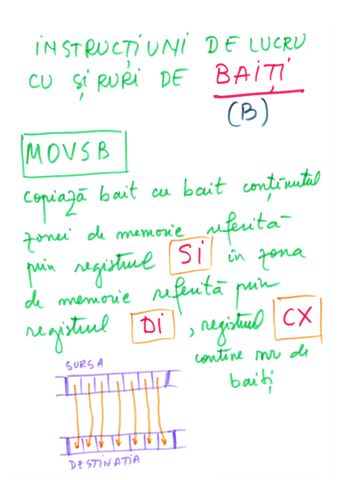 INSTRUCȚIUNI DE LUCRU
CU ȘIRURI DE BAIȚI
(B)
MOVSB
copiază bait cu bait conținutul
zonei de memorie referită
prin registrul Si în zona
de memorie referită prin
registrul Di, registrul CX
contine nr de
baiți
SURSA
DESTINATIA